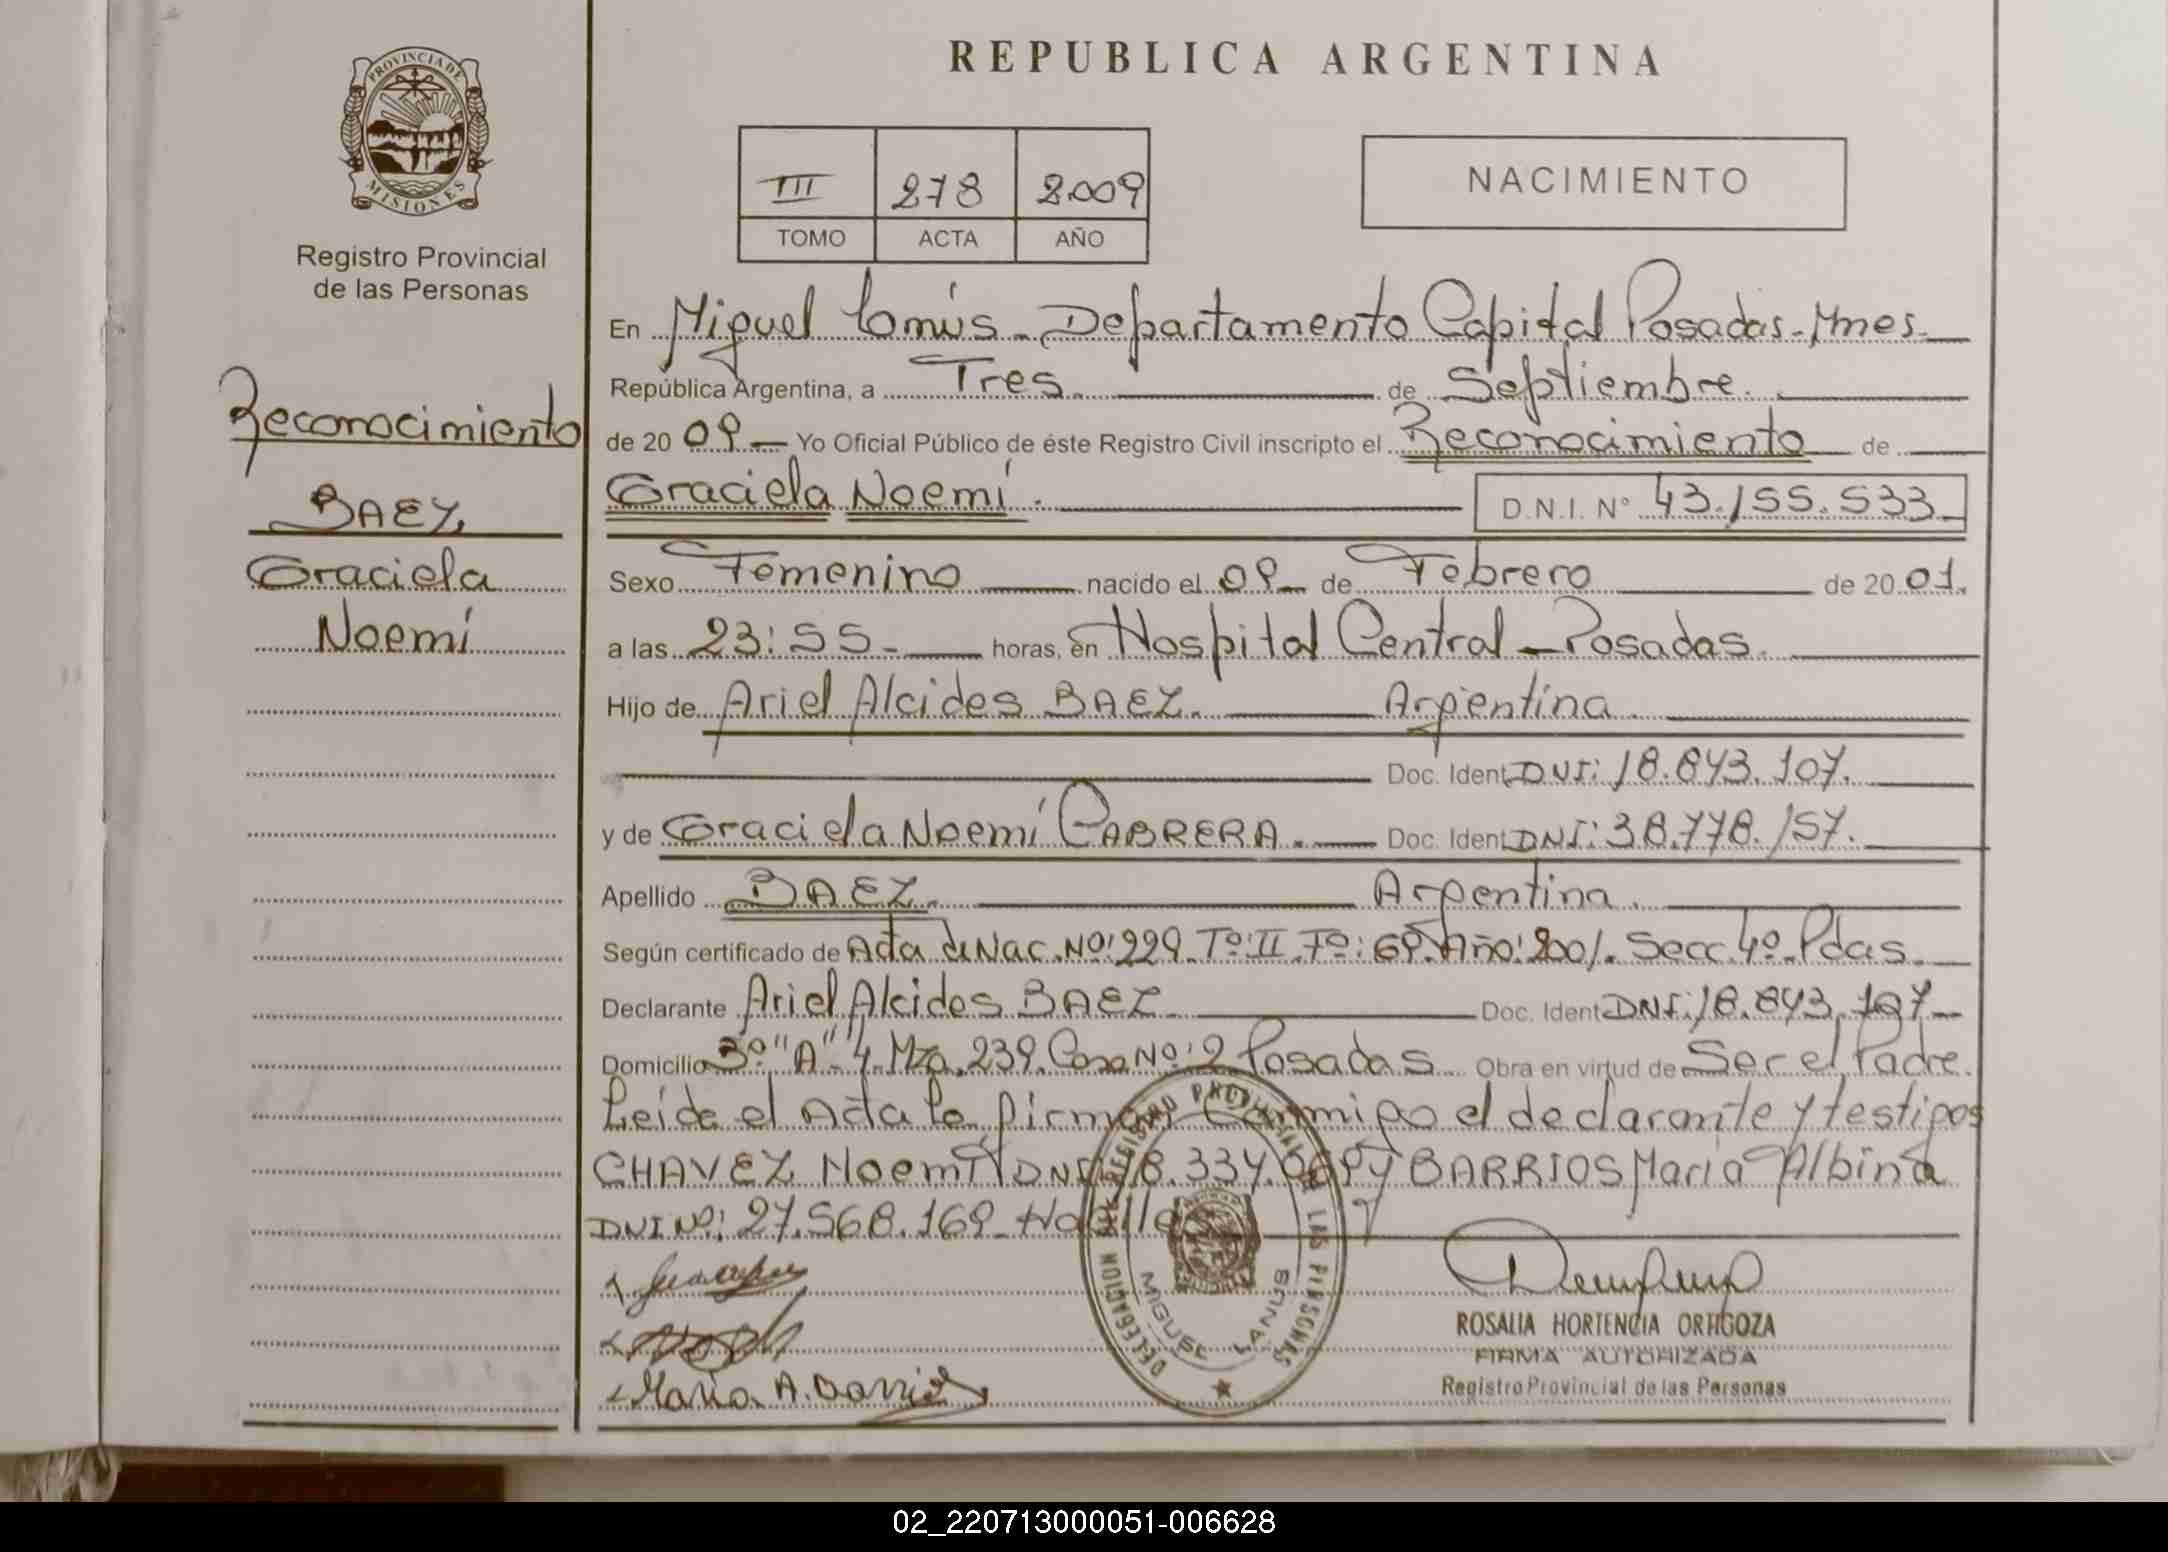 PROVINCIA DE
MISIONES
Registro Provincial
de las Personas
Reconocimiento
BAEZ
Graciela
Noemí
REPUBLICA ARGENTINA
III 278 2009
TOMO ACTA AÑO
NACIMIENTO
En Miguel Lanús - Departamento Capital Posadas - Mnes.
República Argentina, a Tres. de Septiembre.
de 20 09 Yo Oficial Público de éste Registro Civil inscripto el Reconocimiento de
Graciela Noemí. D.N.I. N° 43.155.533
Sexo Femenino nacido el 09 de Febrero de 20 01.
a las 23:55 horas, en Hospital Central - Posadas.
Hijo de Ariel Alcides BAEZ. Argentina.
Doc. Ident. DNI: 18.843.107.
y de Graciela Noemí CABRERA. Doc. Ident. DNI: 38.778.157.
Apellido BAEZ. Argentina.
Según certificado de Acta de Nac. Nº: 229 Tº: II Fº: 69 Año: 2001. Secc. 4º. Pdas.
Declarante Ariel Alcides BAEZ Doc. Ident. DNI: 18.843.107
Domicilio 3º "A" 4. Mza. 239. Casa Nº: 2 Posadas. Obra en virtud de Ser el Padre.
Leída el Acta la firman conmigo el declarante y testigos
CHAVEZ Noemí DNI 18.334. y BARRIOS María Albina
DNI Nº: 27.568.169
María A. Barrios
DELEGACION DEL REGISTRO PROVINCIAL DE LAS PERSONAS
MIGUEL LANUS
ROSALIA HORTENCIA ORTIGOZA
FIRMA AUTORIZADA
Registro Provincial de las Personas
02_220713000051-006628